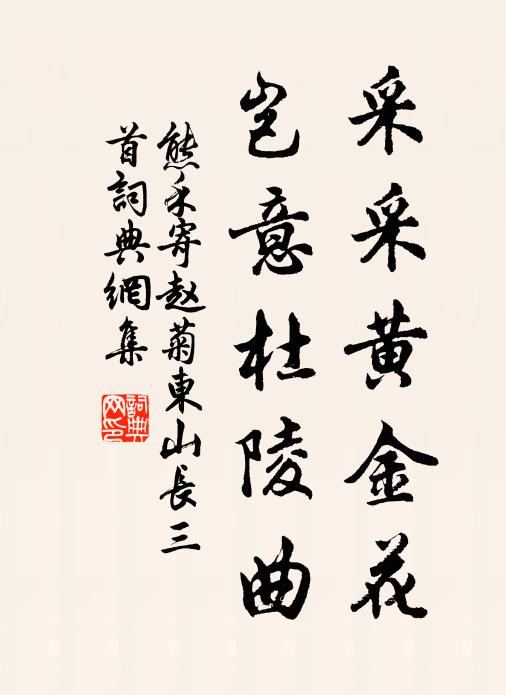 采采黄金花
岂意杜陵曲
熊禾寄赵菊東山長三
首詞典網集
詞典网印